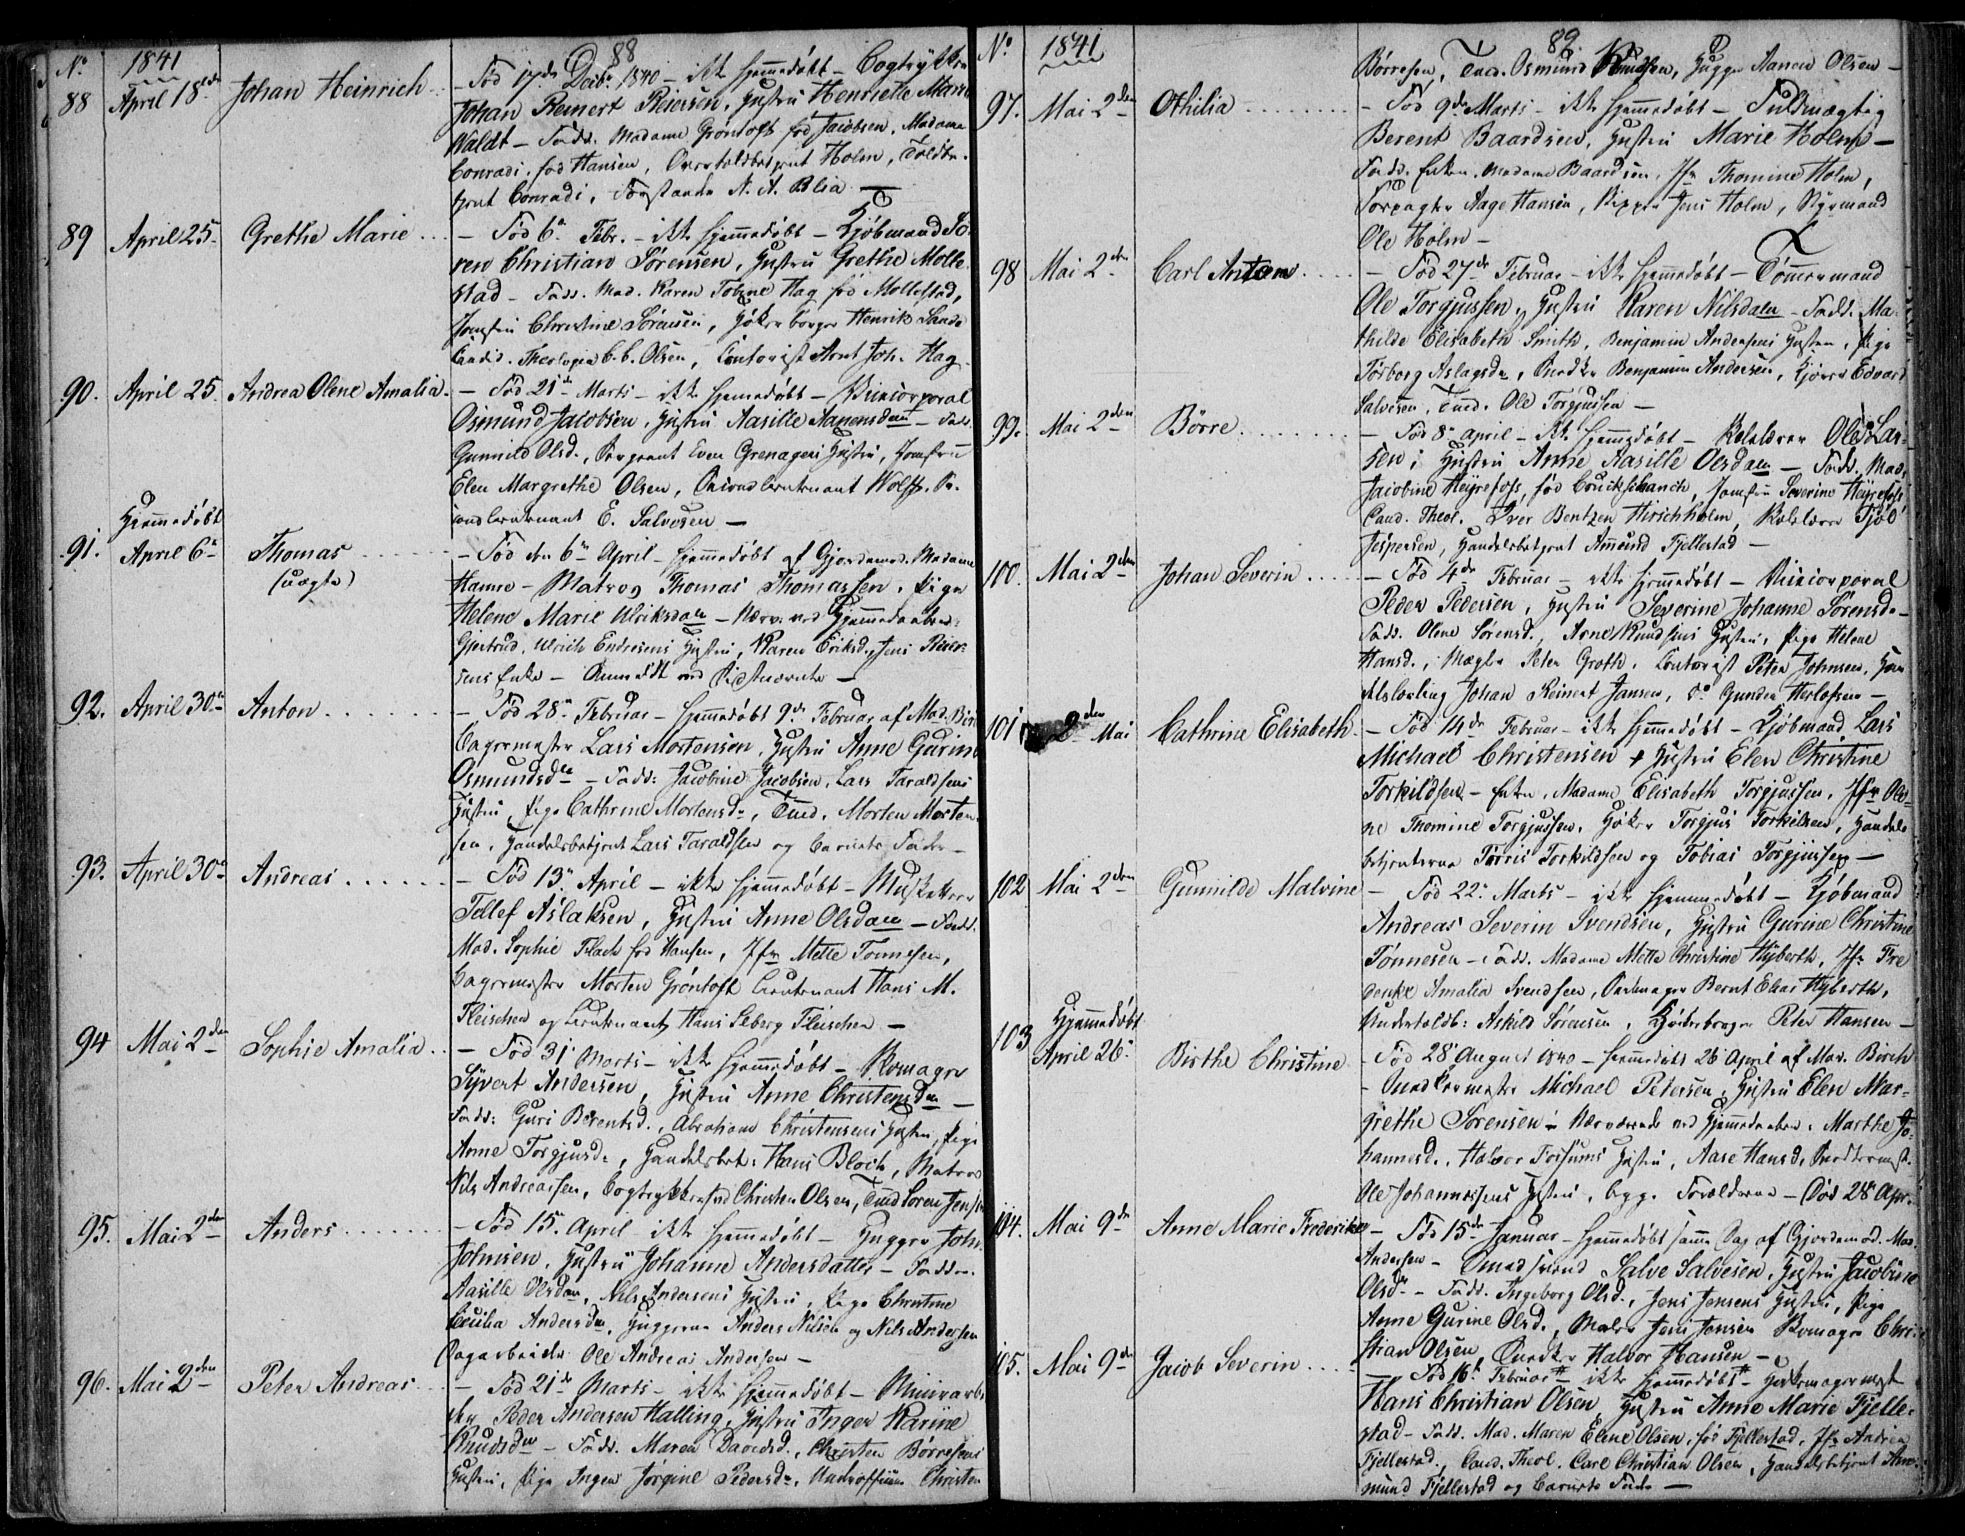 No 1841 88
88 April 18de Johan Heinrich - Fød 17de Decbr 1840 - ikke hjemmedøbt - Bogtrykker
Johan Reinert Reiersen, Hustru Henriette Marie
Waldt - Fadd. Madame Grøntoft fød Jacobsen, Madame
Conradi fød Hansen, Overtoldbetjent Holm, Toldbe-
tjent Conradi, Forstander N. A. Blia -
89 April 25 Grethe Marie - Fød 6 Febr. - ikke hjemmedøbt - Kjøbmand Sø-
ren Christian Sørensen, Hustru Grethe Molle-
stad - Fadd. Mad. Karen Tobine Hag fød Mollestad,
Jomfru Christine Sørensen, Høkerborger Henrik Lande
Candid. Theologia C. C. Olsen, Contorist Arnt Joh. Hag
90. April 25 Andrea Olene Amalia - Fød 21de Marts - ikke hjemmedøbt -
Osmund Jacobsen, Hustru Aasille Aanensdatt - Fadd.
Gunnild Olsd., Sergeant Even Grenagers Hustru, Jomfru
Elen Margrethe Olsen, Lieutenant Wolff,
E. Salvesen -
Hjemmedøbt
91. April 6 Thomas - Fød den 6 April - hjemmedøbt af Gjordemod. Madame
(uægte) Hanne - Matros Thomas Thomassen, Pige
Helene Marie Ulriksdatt - Nærv. ved Hjemmedaaben:
Gjertrud, Ulrich Endresens Hustru, Karen Eriksd., Jens
Enke - Anmeldt ved
92. April 30 Anton - Fød 28 Februar - hjemmedøbt 9de Februar af Mad. Birch
Bagermester Lars Mortensen, Hustru Anne Gurine
Osmundsdtr - Fadd: Jacobine Jacobsen, Lars Taraldsens
Hustru, Pige Cathrine Mortensd., Tmd. Morten Morten-
sen, Handelsbetjent Lars Taraldsen og Barnets Fader -
93. April 30 Andreas - Fød 13 April - ikke hjemmedøbt - Musketeer
Tellef Aslaksen, Hustru Anne Olsdatt - Fadd.
Mad. Sophie Flach fød Hansen, Jfr Mette Tønnesen,
Bagermester Morten Grøntoft Lieutenant Hans M.
Fleischer og Lieutenant Hans Seberg Fleischer -
94 Mai 2den Sophie Amalia - Fød 31 Marts - ikke hjemmedøbt - Skomager
Syvert Andersen, Hustru Anne Christensdn -
Fadd: Guri Berentsd., Abraham Christensens Hustru, Pige
Anne Torgjusd., Handelsbet: Hans Bloch, Matros
Nils Andreassen, Bogtrykkersvd Christen Olsen, Tmd Søren Jensen
95. Mai 2den Anders - Fød 15 April - ikke hjemmedøbt - Hugger John
Johnsen, Hustru Johanne Andersdatter - Fadder.
Aasille Olsdatt, Nils Andersens Hustru, Pige Christine
Cecilia Andersdn, Huggerne Anders Nilsen og Nils Andersen
Dagarbeider Ole Andreas Andersen -
96. Mai 2den Peter Andreas - Fød 21de Marts - ikke hjemmedøbt - Minerarbei-
der Peder Andersen Halling, Hustru Inger Karine
Knudsdn - Fadd. Maren Davidsd., Christen Børresens
Hustru, Pige Inger Jørgine Pedersd., Underofficeer Christen
No 1841 89
Børresen, Tmd. Osmund Knudsen, Hugger Aanen Olsen -
97. Mai 2den Othilia - Fød 9de Marts - ikke hjemmedøbt - Fuldmægtig
Berent Baardsen, Hustru Marie Holm -
Fadd. Enken Madame Baardsen, Jfr Thomine Holm,
Forpagter Aage Hansen, Skipper Jens Holm, Styrmand
Ole Holm -
98 Mai 2den Carl Anton - Fød 27de Februar - ikke hjemmedøbt - Tømmermand
Ole Torgjussen, Hustru Karen Nilsdatt - Fadd. Ma-
thilde Elisabeth Smith, Benjamin Andersens Hustru, Pige
Torborg Aslagsdr, Snedker Benjamin Andersen, Edvard
Salvesen, Tmd. Ole Torgjussen -
99. Mai 2den Børre - Fød 8 April - ikke hjemmedøbt - Skolelærer Ole Lar-
sen, Hustru Anne Aasille Olsdatt - Fadd. Mad.
Jacobine Heyrefoss, fød Cruickschanch, Jomfru Severine Heyrefoss
Cand. Theol. Iver Bentzen Hirschholm, Skolelærer Tjøl
Jespersen, Handelsbetjent Amund Fjellestad -
100. Mai 2den Johan Severin - Fød 4de Februar - ikke hjemmedøbt -
Peder Pedersen, Hustru Severine Johanne Sørensd. -
Fadd. Olene Sørensd., Arne Knudsens Hustru, Pige Helene
Hansd., Mægler Peter Groth, Contorist Peter Johnsen, Han-
delslærling Johan Reinert Jansen, do Gunder Herlofsen -
101 2den Mai Cathrine Elisabeth - Fød 14de Februar - ikke hjemmedøbt - Kjøbmand Lars
Michael Christensen, Hustru Elen Christine
Torkildsen - Enken Madame Elisabeth Torgjussen, Jfr Ole-
ne Thomine Torgjussen, Høker Torgjus Torkildsen, Handels-
betjenterne Torris Torkildsen og Tobias Torgjussen -
102 Mai 2den Gunnilde Malvine - Fød 22 Marts - ikke hjemmedøbt - Kjøbmand
Andreas Severin Svendsen, Hustru Gurine Christine
Tønnesen - Fadd. Madame Mette Christine Hyberth, Jfr Fre-
derike Amalia Svendsen, Bernt Elias Hyberth,
Undertoldb: Askild Sørensen, Peter Hansen -
Hjemmedøbt
103 April 26 Birthe Christine - Fød 28 August 1840 - hjemmedøbt 26 April af Mad. Birch
- Snedkermester Michael Petersen, Hustru Elen Mar-
grethe Sørensen - Nærværende ved Hjemmedaaben: Marthe Jo-
hannesd., Halvor Fossums Hustru, Aase Hansd. Snedkermest.
Ole Johannessens Hustru, begge Forældrene - Død 28 Apr.
104. Mai 9de Anne Marie Frederike - Fød 15de Januar - hjemmedøbt samme Dag af Gjordemod. Mad.
Andersen - Smedsvend Salve Salvesen, Hustru Jacobine
Olsdr - Fadd. Ingeborg Olsd., Jens Jensens Hustru, Pige
Anne Gurine Olsd., Maler Jens Jensen Skomager Chri-
stian Olsen Snedker Halvor Hansen -
105. Mai 9de Jacob Severin - Fød 16de Februar - ikke hjemmedøbt -
Hans Christian Olsen, Hustru Anne Marie Fjelle-
stad - Fadd. Mad. Maren Elene Olsen, fød Fjellestad, Jfr Andrea
Fjellestad, Cand. Theol. Carl Christian Olsen, Handelsbetjent Am-
mund Fjellestad og Barnets Fader -